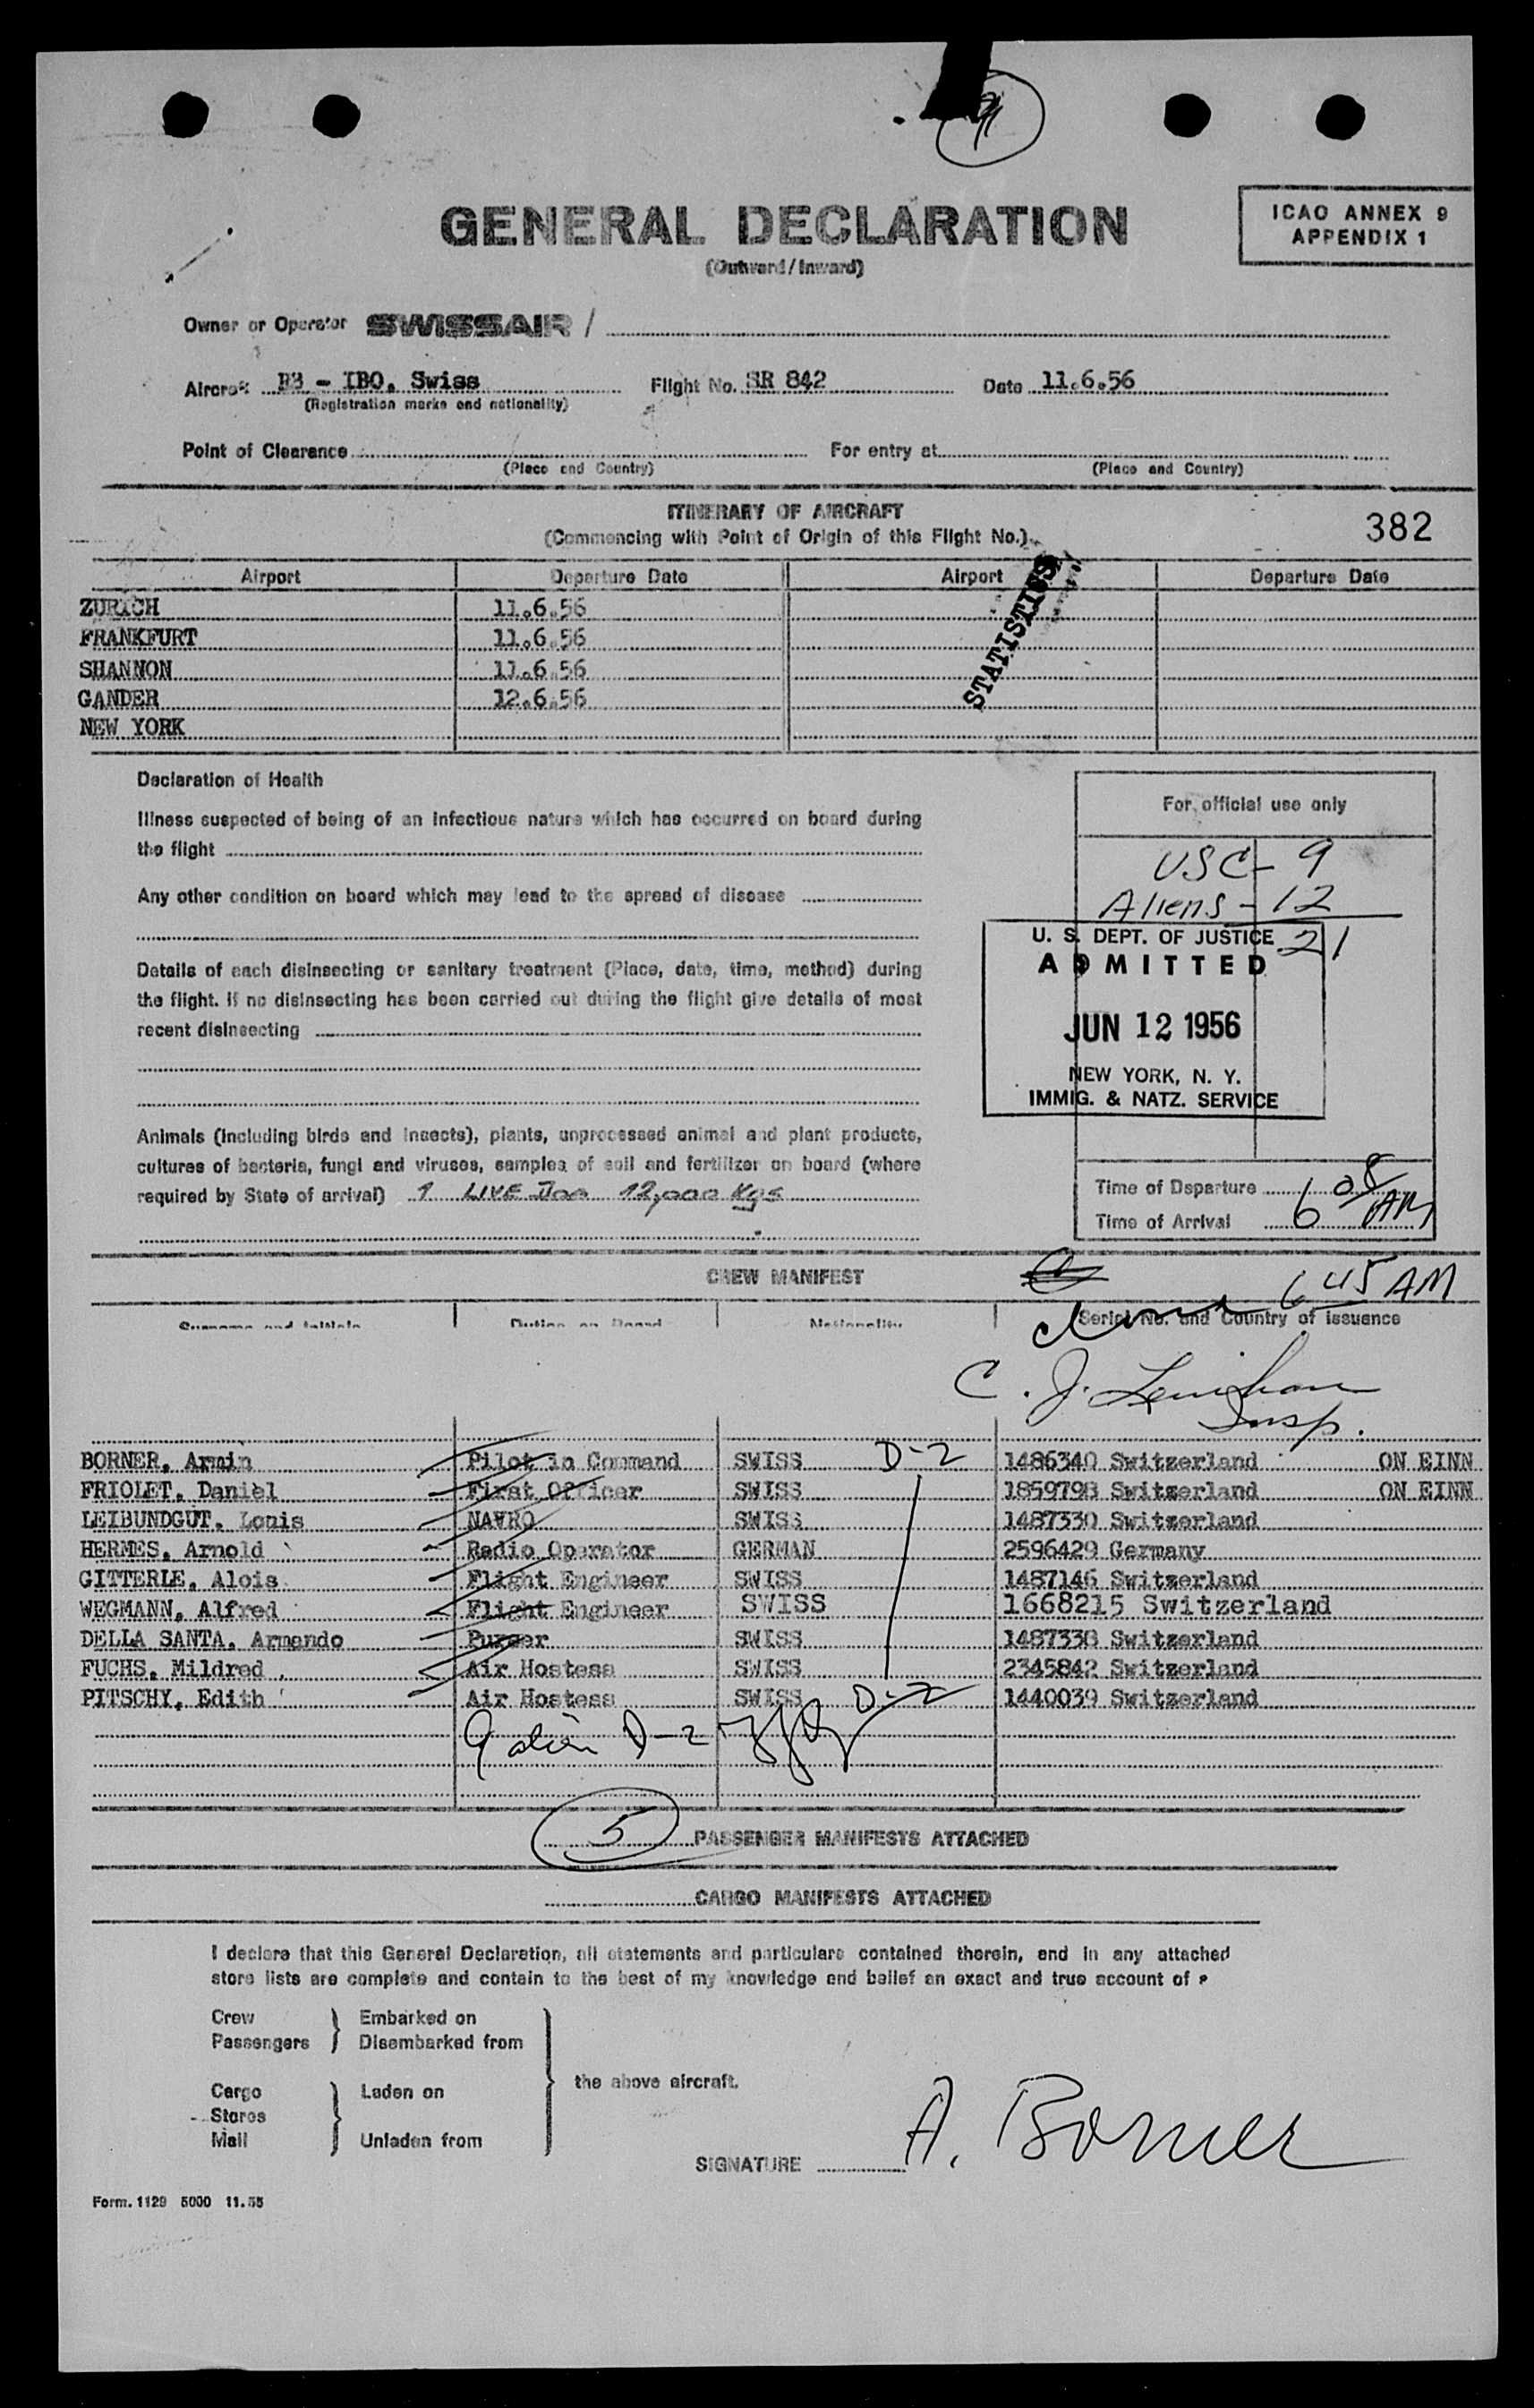 GENERAL DECLARATION
(Outward/Inward)
ICAO ANNEX 9
APPENDIX 1
Owner or Operator SWISSAIR /
Aircraft HB - IBO. Swiss Flight No. SR 842 Date 11.6.56
(Registration marks and nationality)
Point of Clearance For entry at
(Place and Country) (Place and Country)
ITINERARY OF AIRCRAFT
(Commencing with Point of Origin of this Flight No.)
382
Airport Departure Date Airport Departure Date
STATISTICS
ZURICH 11.6.56
FRANKFURT 11.6.56
SHANNON 11.6.56
GANDER 12.6.56
NEW YORK
Declaration of Health
Illness suspected of being of an infectious nature which has occurred on board during
the flight
Any other condition on board which may lead to the spread of disease
Details of each disinsecting or sanitary treatment (Place, date, time, method) during
the flight. If no disinsecting has been carried out during the flight give details of most
recent disinsecting
Animals (including birds and insects), plants, unprocessed animal and plant products,
cultures of bacteria, fungi and viruses, samples of soil and fertilizer on board (where
required by State of arrival) 1 LIVE Dog 12,000 Kgs
For official use only
USC - 9
Aliens - 12
21
U. S. DEPT. OF JUSTICE
ADMITTED
JUN 12 1956
NEW YORK, N. Y.
IMMIG. & NATZ. SERVICE
Time of Departure
Time of Arrival 6 08 AM
CREW MANIFEST
6 45 AM
Surname and Initials Duties on Board Nationality Serial No. and Country of issuance
C. J. Lenihan
Insp.
BORNER, Armin Pilot in Command SWISS D-2 1486340 Switzerland ON EINN
FRIOLET, Daniel First Officer SWISS 1859798 Switzerland ON EINN
LEIBUNDGUT, Louis NAVRO SWISS 1487330 Switzerland
HERMES, Arnold Radio Operator GERMAN 2596429 Germany
GITTERLE, Alois Flight Engineer SWISS 1487146 Switzerland
WEGMANN, Alfred Flight Engineer SWISS 1668215 Switzerland
DELLA SANTA, Armando Purser SWISS 1487338 Switzerland
FUCHS, Mildred Air Hostess SWISS 2345842 Switzerland
PITSCHY, Edith Air Hostess SWISS D-2 1440039 Switzerland
9 alien D-2
5 PASSENGER MANIFESTS ATTACHED
CARGO MANIFESTS ATTACHED
I declare that this General Declaration, all statements and particulars contained therein, and in any attached
store lists are complete and contain to the best of my knowledge and belief an exact and true account of
Crew Embarked on
Passengers Disembarked from
the above aircraft.
Cargo Laden on
Stores
Mail Unladen from
SIGNATURE A. Borner
Form. 1129 5000 11.55